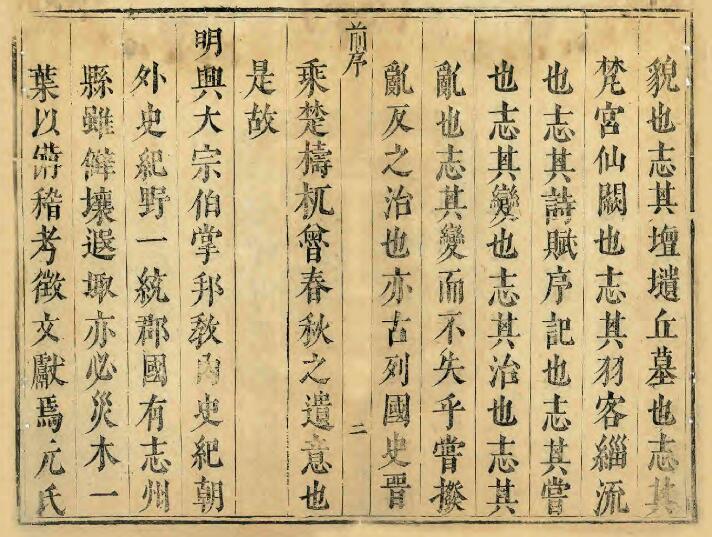 貌也志其壇壝丘墓也志其
梵宮仙闕也志其羽客緇流
也志其詩賦序記也志其嘗
也志其變也志其治也志其
亂也志其變而不失乎嘗撥
亂反之治也亦古列國史晉
前序
二
乘楚檮杌曾春秋之遺意也
是故
明興大宗伯掌邦敎內史紀朝
外史紀野一統郡國有志州
縣雖僻壤遐陬亦必災木一
葉以偹稽考徵文獻焉元氏